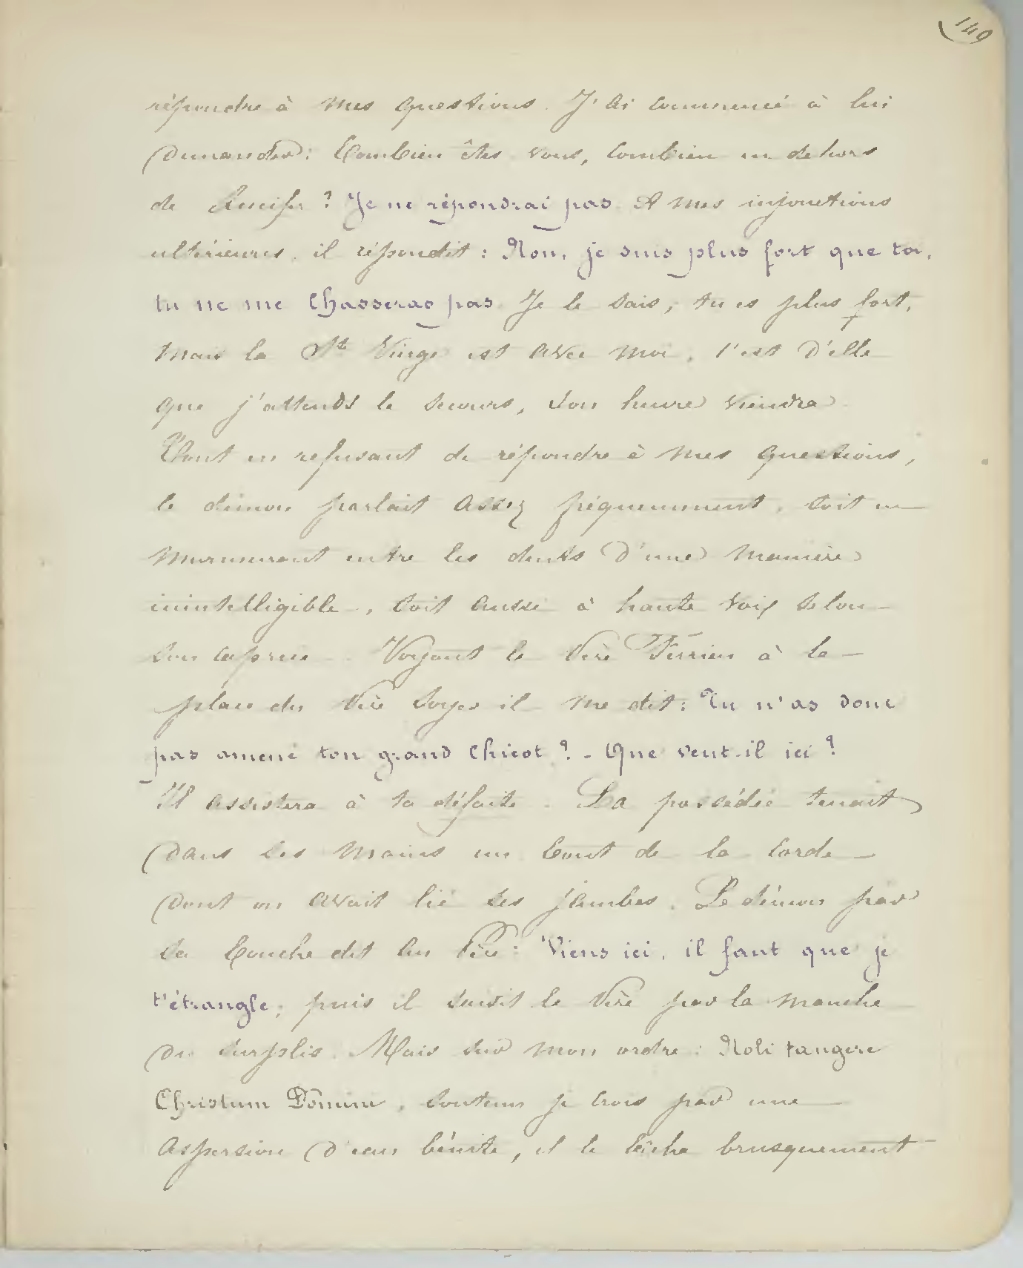 149
répondre à mes questions. J'ai commencé à lui
demander: Combien êtes vous, combien en dehors
de Lucifer? Je ne répondrai pas. A mes injonctions
ultérieures, il répondit: Non, je suis plus fort que toi,
tu ne me chasseras pas. Je le sais, tu es plus fort,
mais la Ste Vierge est avec moi, c'est d'elle
que j'attends le secours, son heure viendra.
Tout en refusant de répondre à mes questions,
le démon parlait assez fréquemment, soit en
murmurant entre les dents d'une manière
inintelligible, soit aussi à haute voix selon
son caprice. Voyant le Père Terrien à la
place du Père Soyer il me dit: Tu n'as donc
pas amené ton grand Chicot? - Que veut-il ici?
Il assistera à ta défaite. La possédée tenait
dans les mains un bout de la corde
dont on avait lié ses jambes. Le démon par
sa bouche dit au Père: Viens ici, il faut que je
t'étrangle; puis il saisit le Père par la manche
du surplis. Mais sur mon ordre: Noli tangere
Christum Domini, soutenu je crois par une
aspersion d'eau bénite, il le lâcha brusquement